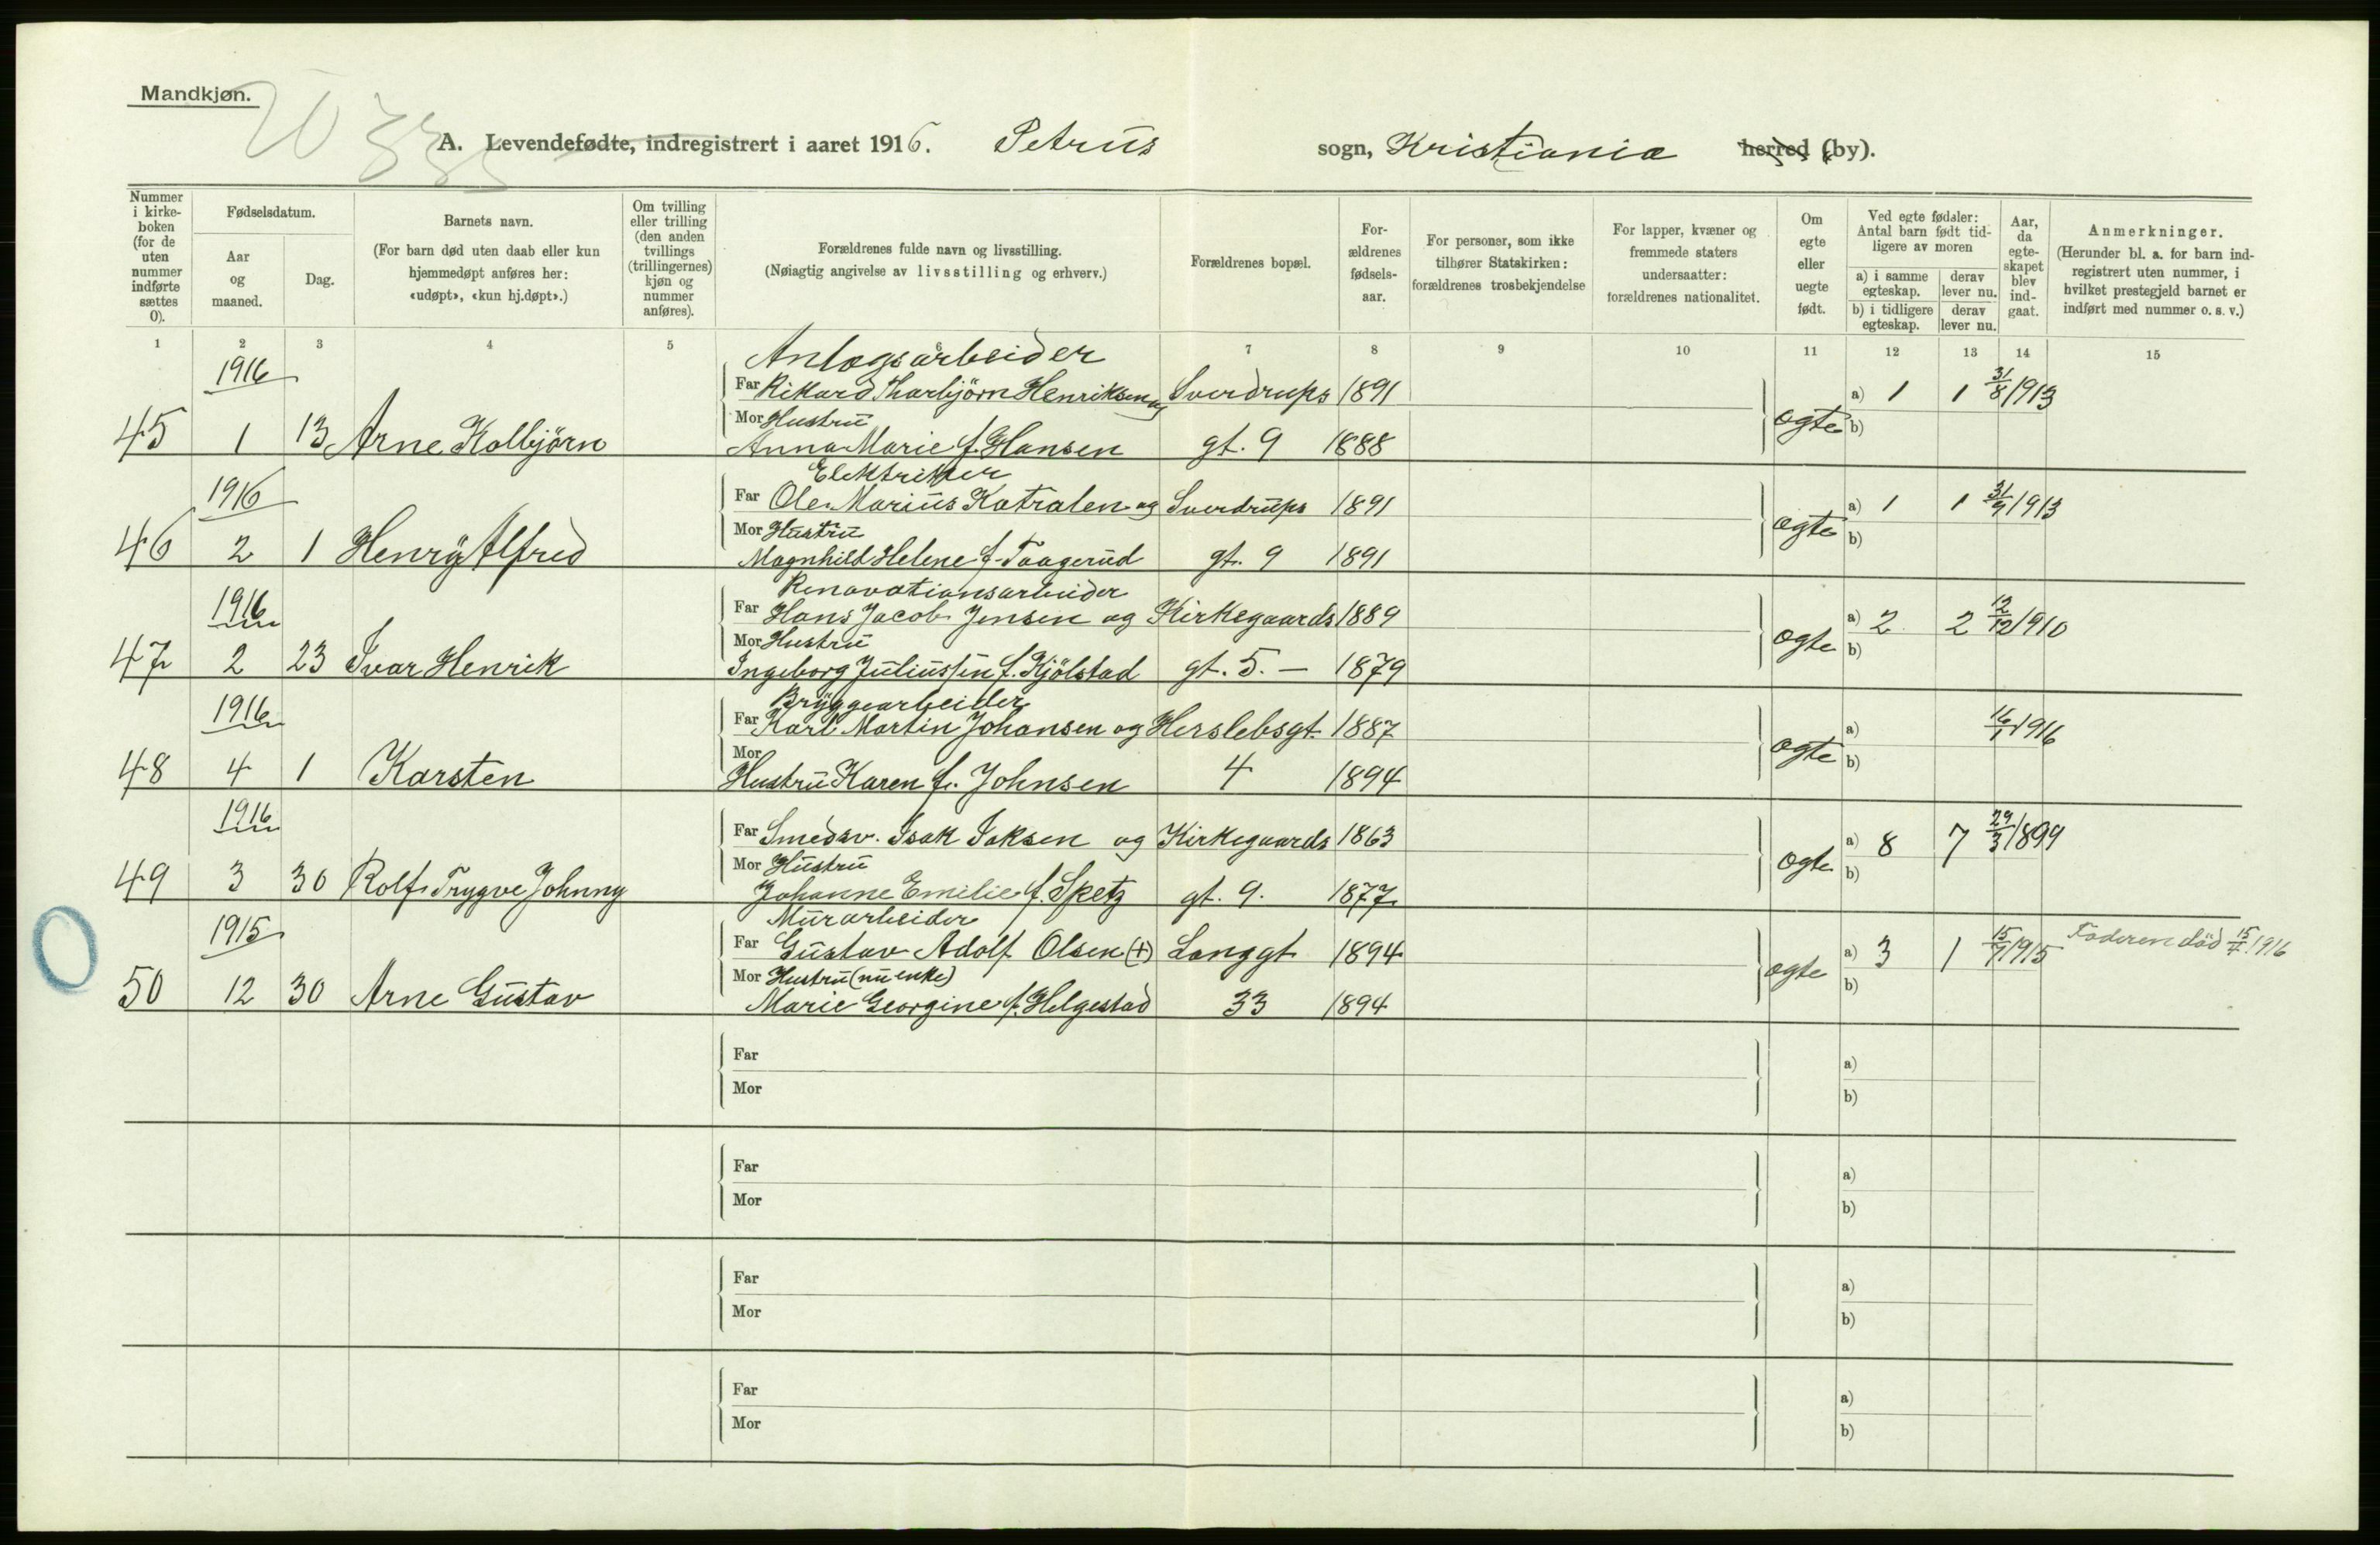 Mandkjøn.
A. Levendefødte, indregistrert i aaret 1916. Petrus sogn, Kristiania herred (by).
Nummer i kirke-boken (for de uten nummer indførte sættes 0).
Fødselsdatum.
Aar og maaned.
Dag.
Barnets navn.
(For barn død uten daab eller kun hjemmedøpt anføres her: «udøpt», «kun hj.døpt».)
Om tvilling eller trilling (den anden tvillings (trillingernes) kjøn og nummer anføres).
Forældrenes fulde navn og livsstilling.
(Nøiagtig angivelse av livsstilling og erhverv.)
Forældrenes bopæl.
For-ældrenes fødsels-aar.
For personer, som ikke tilhører Statskirken: forældrenes trosbekjendelse
For lapper, kvæner og fremmede staters undersaatter: forældrenes nationalitet.
Om egte eller uegte født.
Ved egte fødsler: Antal barn født tid-ligere av moren
a) i samme egteskap. derav lever nu.
b) i tidligere egteskap. derav lever nu.
Aar, da egte-skapet blev ind-gaat.
Anmerkninger.
(Herunder bl. a. for barn ind-registrert uten nummer, i hvilket prestegjeld barnet er indført med nummer o. s. v.)
1 2 3 4 5 6 7 8 9 10 11 12 13 14 15
1916 Anlægsarbeider
Far Rikard Thorbjörn Henriksen og Sverdrups 1891 a) 1 1 31/8 1913
Mor Hustru ægte b)
45 1 13 Arne Kolbjörn Anna Marie f. Hansen gt. 9 1888
1916 Elektriker
Far Ole Marius Katralen og Sverdrups 1891 a) 1 1 31/9 1913
Mor Hustru ægte b)
46 2 1 Henry Alfred Magnhild Helene f. Taagerud gt. 9 1891
1916 Renovationsarbeider
Far Hans Jacob Jensen og Kirkegaards 1889 a) 2 2 12/12 1910
Mor Hustru ægte b)
47 2 23 Ivar Henrik Ingeborg Juliussen f. Kjölstad gt. 5. — 1879
1916 Bryggearbeider
Far Karl Martin Johansen og Herslebsgt. 1887 a) 1916
Mor ægte b)
48 4 1 Karsten Hustru Karen f. Johnsen 4 1894
1916
Far Smedsv. Isak Isaksen og Kirkegaards 1863 a) 8 7 29/3 1899
Mor Hustru ægte b)
49 3 30 Rolf Trygve Johnny Johanne Emilie f. Spetz gt. 9. 1877
1915 Murarbeider
Far Gustav Adolf Olsen (+) Langgt 1894 a) 3 1 1915 Faderen död 15/7 1916
Mor Hustru (nu enke) ægte b)
50 12 30 Arne Gustav Marie Georgine f. Helgestad 33 1894
Far a)
Mor b)
Far a)
Mor b)
Far a)
Mor b)
Far a)
Mor b)